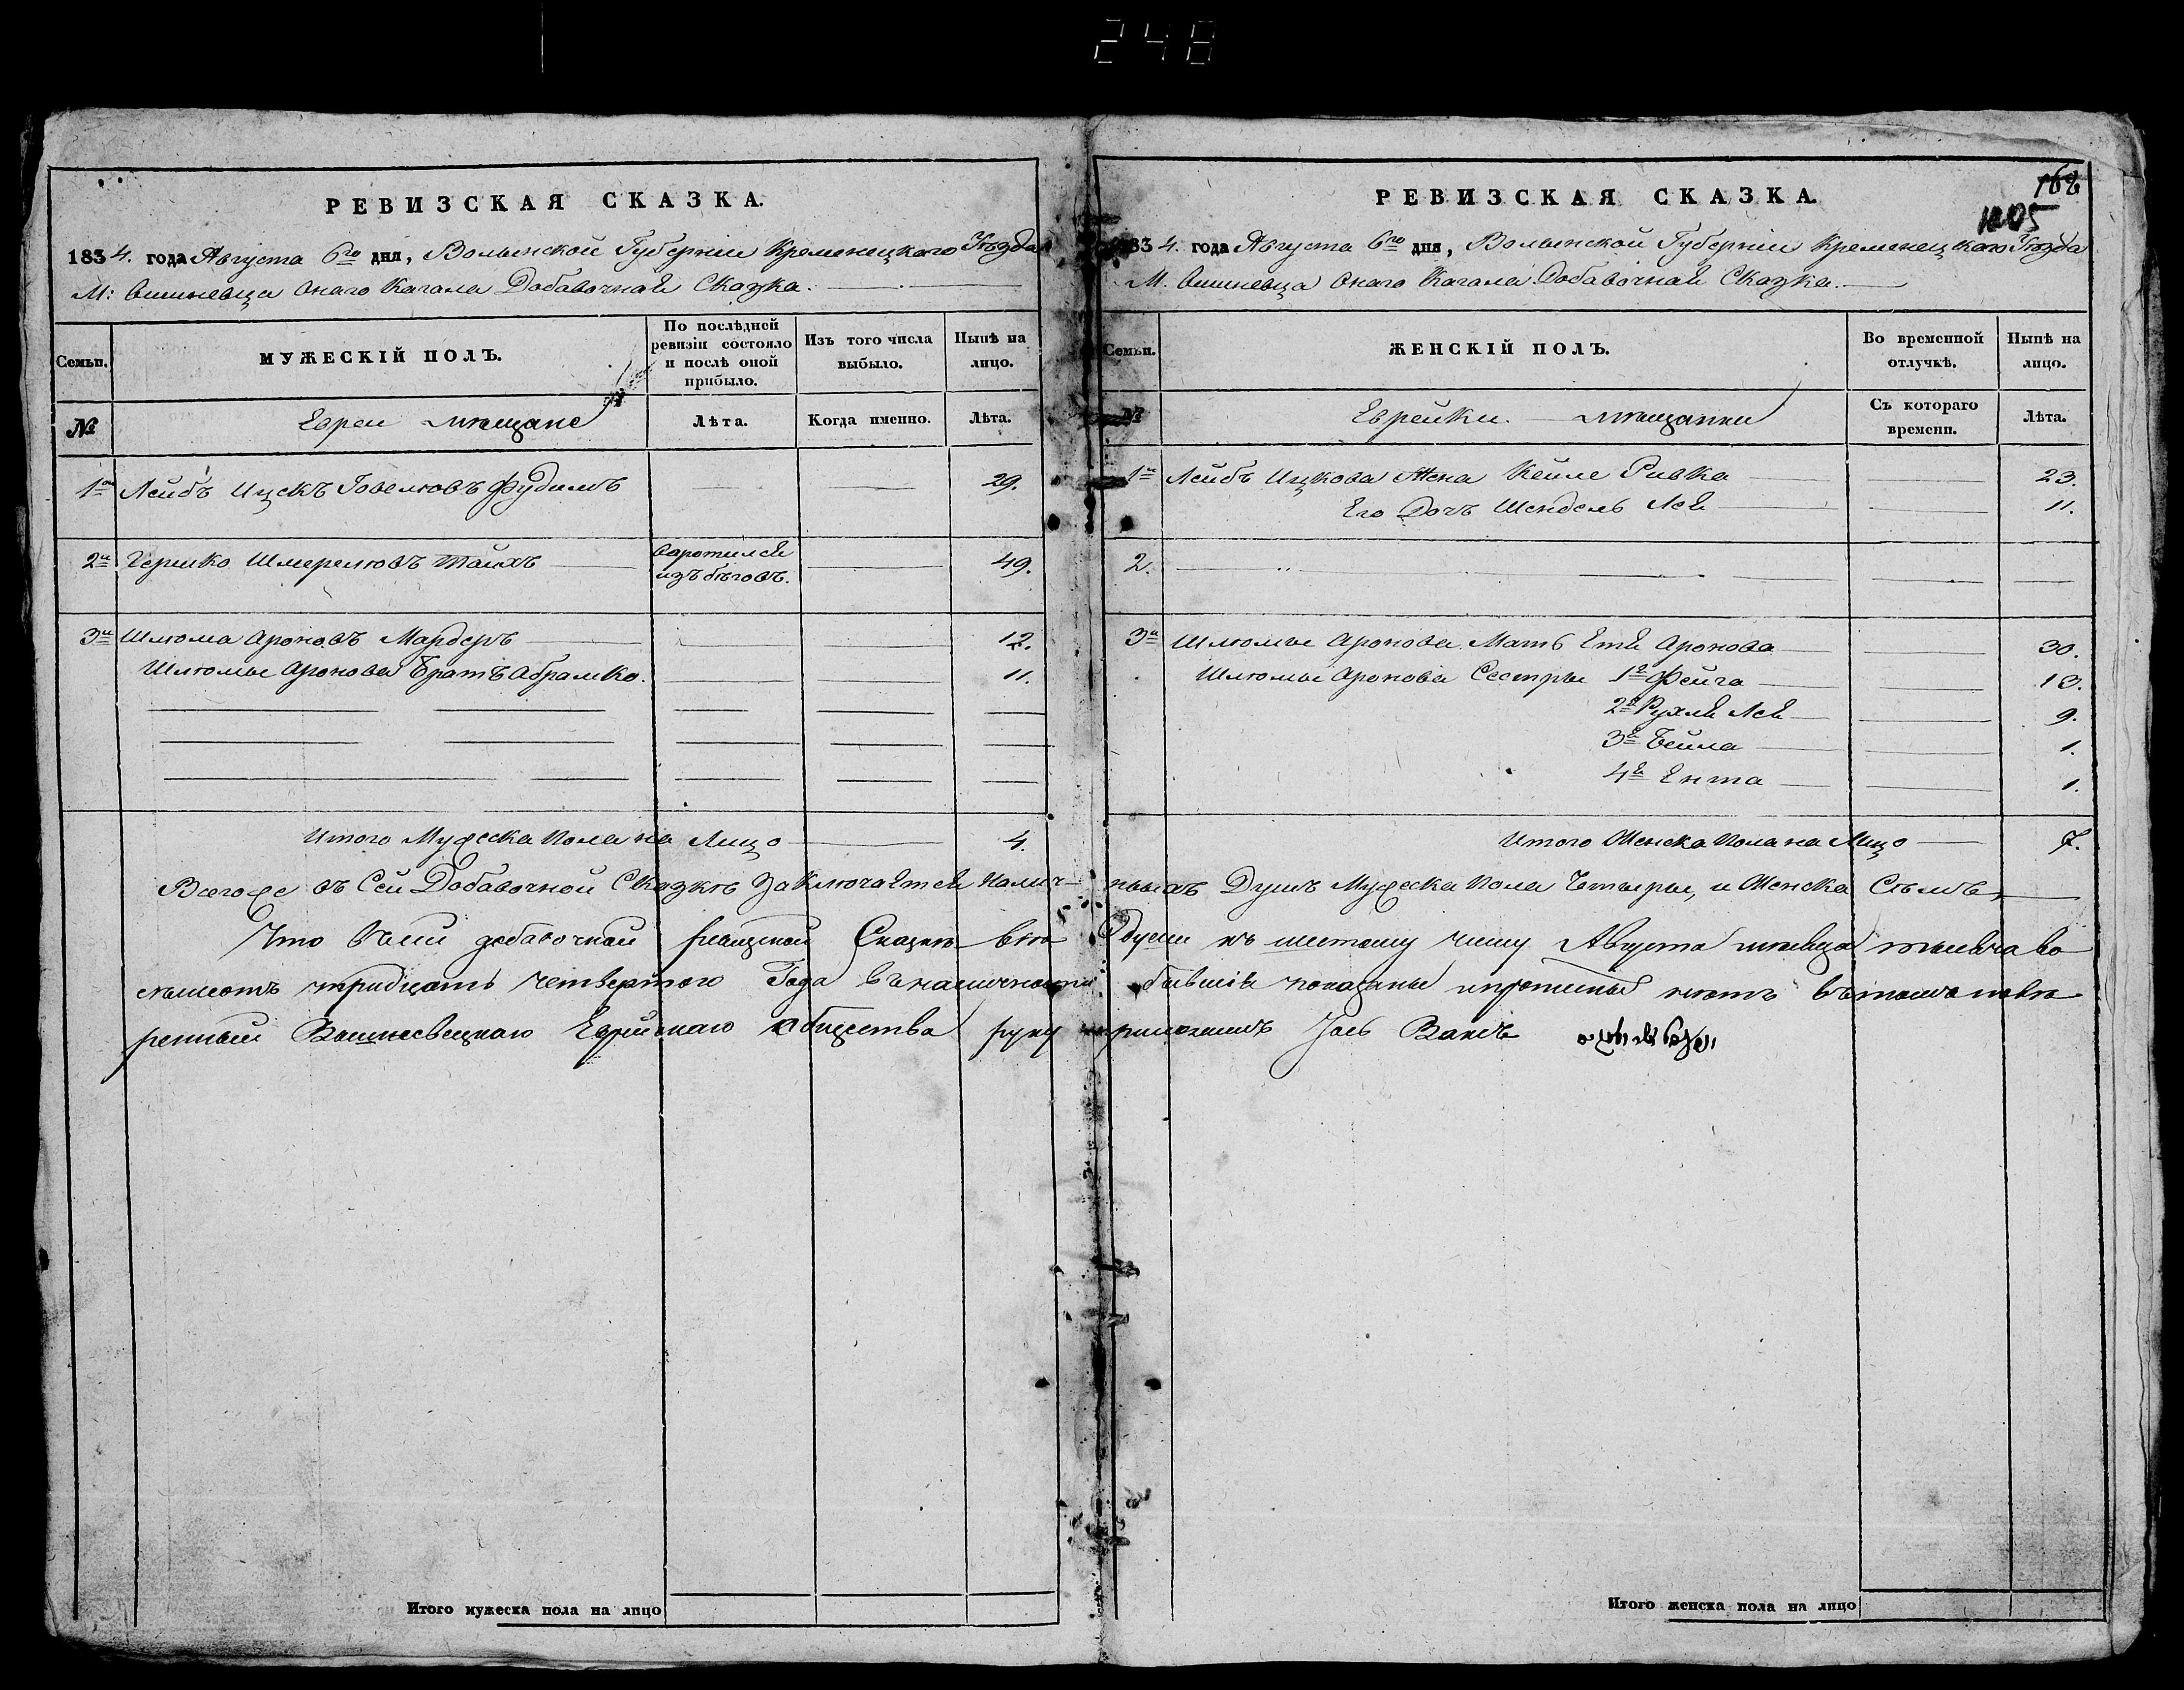 248
РЕВИЗСКАЯ СКАЗКА.
1834. года Августа 6го дня, Волынской Губернiи Кременецкого Уѣзда
М: Вишневца Онаго Кагала Добавочная Сказка.
Семьи.
МУЖЕСКIЙ ПОЛЪ.
По послѣдней ревизiи состояло и послѣ оной прибыло.
Изъ того числа выбыло.
Нынѣ на лицо.
№
Евреи мещане
Лѣта.
Когда именно.
Лѣта.
1й Лейбъ Ицекъ Говелювъ Фудимъ 29.
2й Гершко Шмерелювъ Тайхъ Варотился изъ бѣговъ. 49.
3й Шлюма Ароновъ Мардеръ 12.
Шлюмы Аронова Братъ Абрамко. 11.
Итого Мужеска Пола на Лицо 4.
РЕВИЗСКАЯ СКАЗКА.
162
1205
1834. года Августа 6го дня, Волынской Губернiи Кременецкаго Уѣзда
М. Вишневца Онаго Кагала Добавочная Сказка.
Семьи.
ЖЕНСКIЙ ПОЛЪ.
Во временной отлучкѣ.
Нынѣ на лицо.
№
Еврейки. мещанки
Съ котораго времени.
Лѣта.
1й Лейбъ Ицкова Жена Кейле Ривка 23.
Его Дочъ Шендель Лея 11.
2.
3й Шлюмы Аронова Мать Етя Аронова 30.
Шлюмы Аронова Сестры 1я Фейга 13.
2я Рухля Лея 9.
3я Бейла 1.
4я Ента 1.
Итого Женска Пола на Лицо 7.
Всего же въ Сей Добавочной Сказкѣ Заключается Налич- ныхъ Душъ Мужеска Пола Четыры, и Женска Сѣмъ,
Что въ сей добавочной ревизской Сказки всѣ Одуши къ шестому числу Августа месяца тысяча во
семьсотъ тридцать четвертого Года въ наличности бывшiя показаны и протипныхъ нетъ въ томъ повѣ
ренный Вышневецкаго Еврейскаго общества руку приложилъ Iось Ваксъ
Итого мужеска пола на лицо
Итого женска пола на лицо